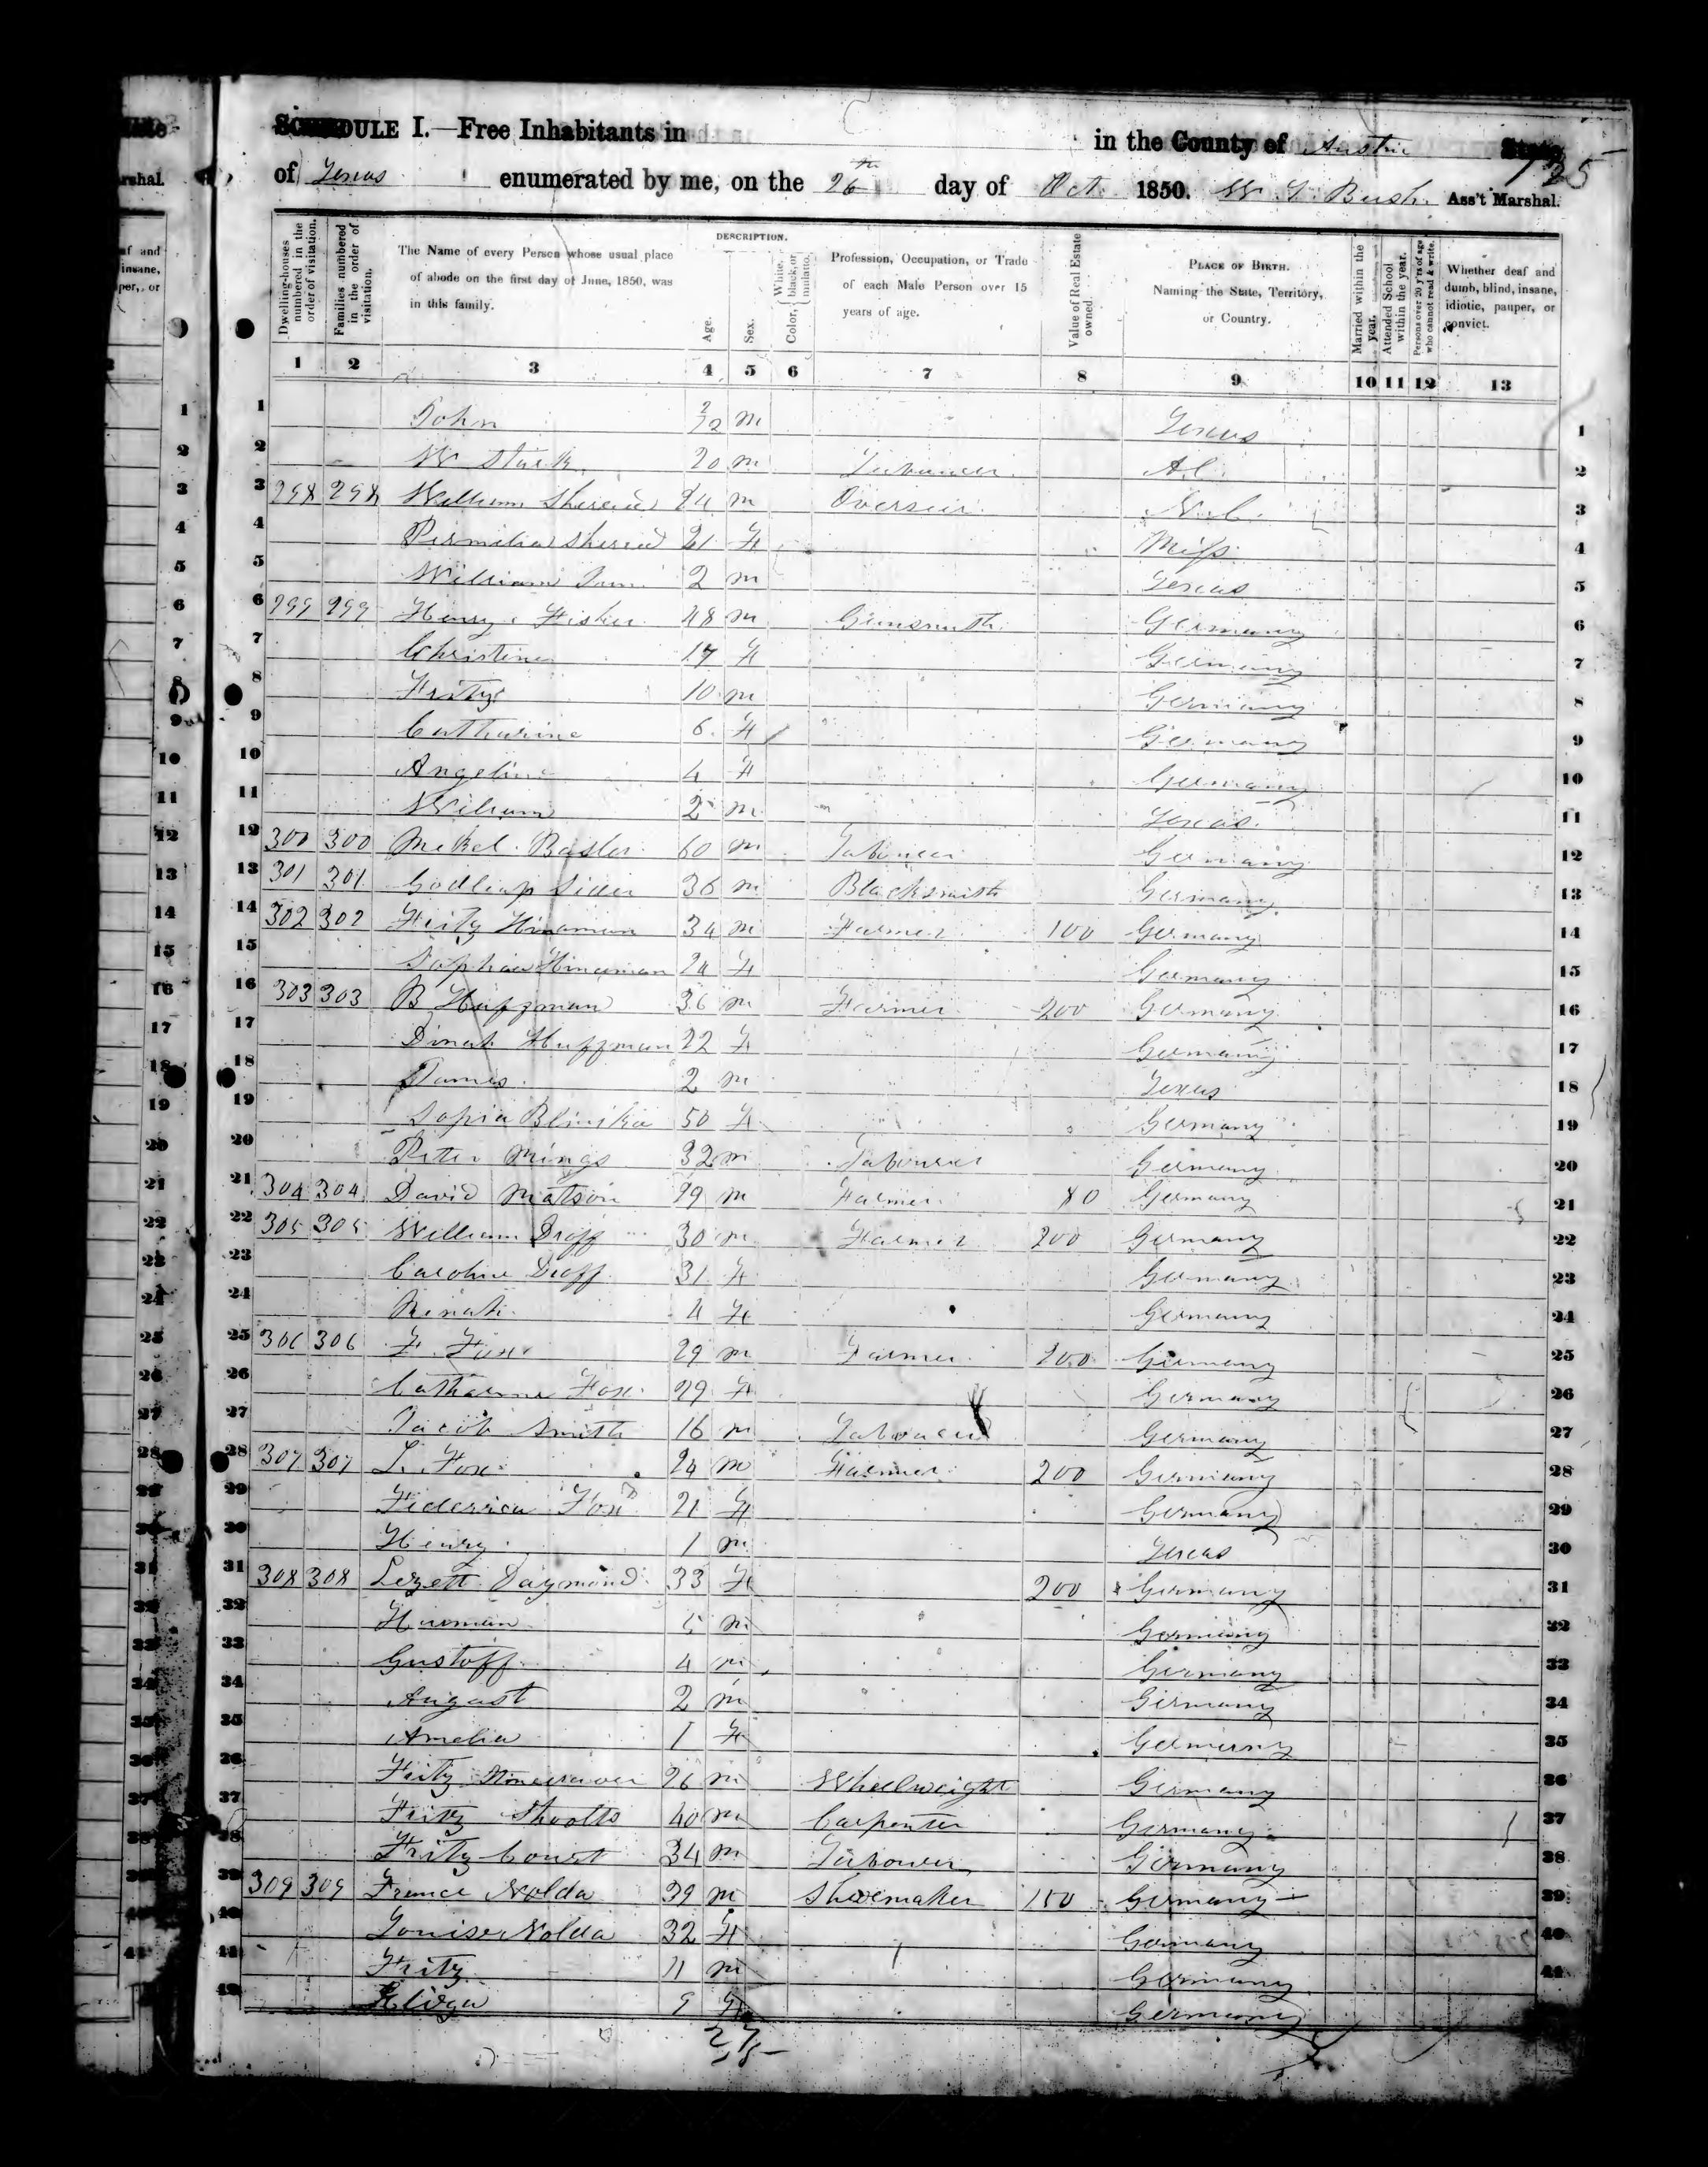 SCHEDULE I.—Free Inhabitants in in the County of Austin State
of Texas enumerated by me, on the 26th day of Oct 1850. W. Y. Bush. Ass't Marshal.
125
Dwelling-houses numbered in the order of visitation. Families numbered in the order of visitation. The Name of every Person whose usual place of abode on the first day of June, 1850, was in this family. DESCRIPTION. Age. Sex. Color, { White, black, or mulatto. Profession, Occupation, or Trade of each Male Person over 15 years of age. Value of Real Estate owned. PLACE OF BIRTH. Naming the State, Territory, or Country. Married within the year. Attended School within the year. Persons over 20 y'rs of age who cannot read & write. Whether deaf and dumb, blind, insane, idiotic, pauper, or convict.
1 2 3 4 5 6 7 8 9 10 11 12 13
1 John 2/12 m Texas 1
2 W Stark 20 m Labourer Al. 2
3 298 298 William Sheread 24 m Overseir N.C. 3
4 Permelia Sheread 21 F Miss. 4
5 William Jun. 2 m Texas 5
6 299 299 Henry Fisher 48 m Gunsmith Germany 6
7 Christine 17 F Germany 7
8 Fritz 10 m Germany 8
9 Catharine 6 F Germany 9
10 Angeline 4 F Germany 10
11 William 2 m Texas 11
12 300 300 Mekel Basler 60 m Labourer Germany 12
13 301 301 Godleap Sider 36 m Blacksmith Germany 13
14 302 302 Fritz Hinaman 34 m Farmer 100 Germany 14
15 Sophia Hinaman 24 F Germany 15
16 303 303 B Huffman 36 m Farmer 200 Germany 16
17 Dinah Huffman 22 F Germany 17
18 James 2 m Texas 18
19 Sopia Blinika 50 F Germany 19
20 Peter Mings 32 m Labourer Germany 20
21 304 304 David Matson 29 m Farmer 80 Germany 21
22 305 305 William Droff 30 m Farmer 200 Germany 22
23 Caroline Droff 31 F Germany 23
24 4 F Germany 24
25 306 306 F. Fox 29 m Farmer 200 Germany 25
26 Catharine Fox 29 F Germany 26
27 Jacob Smith 16 m Labourer Germany 27
28 307 307 L. Fox 24 m Farmer 200 Germany 28
29 Federica Fox 21 F Germany 29
30 Henry 1 m Texas 30
31 308 308 Lezett Daymond 33 F 200 Germany 31
32 Hurman 5 m Germany 32
33 Gustoff 4 m Germany 33
34 August 2 m Germany 34
35 Amelia 1 F Germany 35
36 Fritz 26 m Wheelwright Germany 36
37 Fritz Shoolts 40 m Carpenter Germany 37
38 Fritz Court 34 m Labourer Germany 38
39 309 309 France Nolda 39 m Shoemaker 150 Germany 39
40 Louise Nolda 32 F Germany 40
41 Fritz 11 m Germany 41
42 Eliza 9 F Germany
27
15